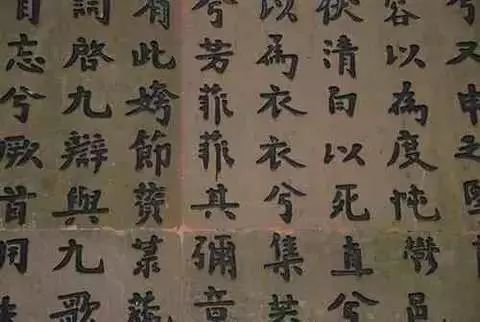 兮又申之
容以為度忳鬱邑
伏清白以死直兮
以為衣衣兮集芙
兮芳菲菲其彌章
有此姱節薋菉葹
詞啓九辯與九歌
自忘兮厥首